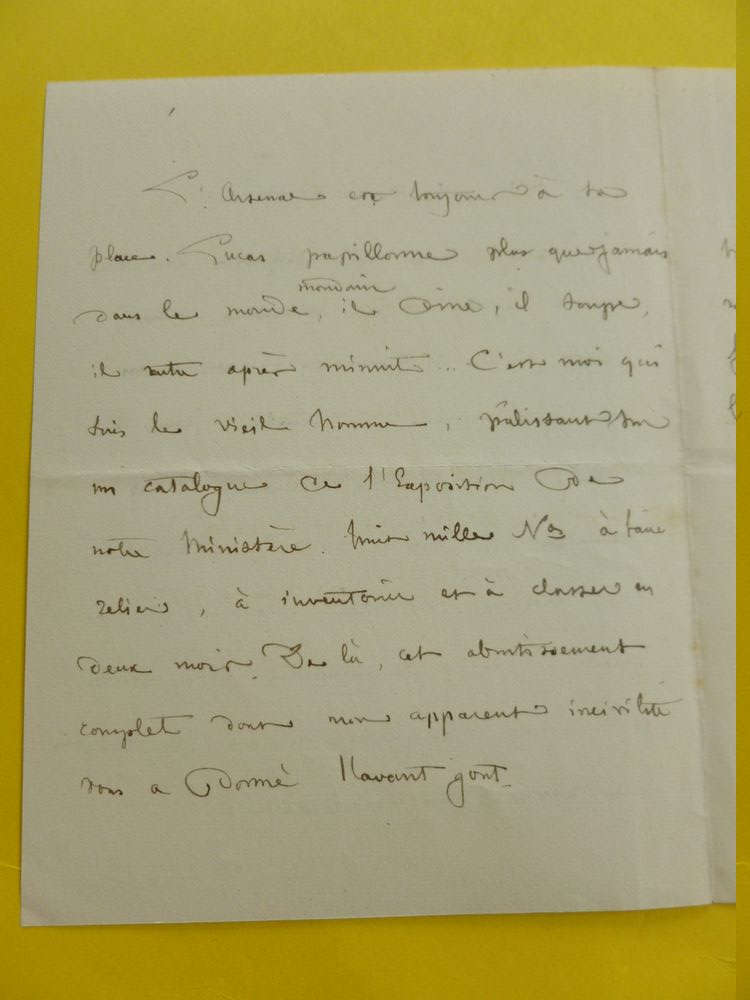 L'Arsenal est toujours à sa
place. Lucas papillonne plus que jamais
mondain
dans le monde, il dine, il soupe,
il rentre après minuit... C'est moi qui
suis le vieil homme, pâlissant sur
un catalogue de l'Exposition de
notre Ministère. Huit mille Nos à faire
relier, à inventorier et à classer en
deux mois. De là, cet abrutissement
complet dont mon apparente incivilité
vous a donné l'avant goût.